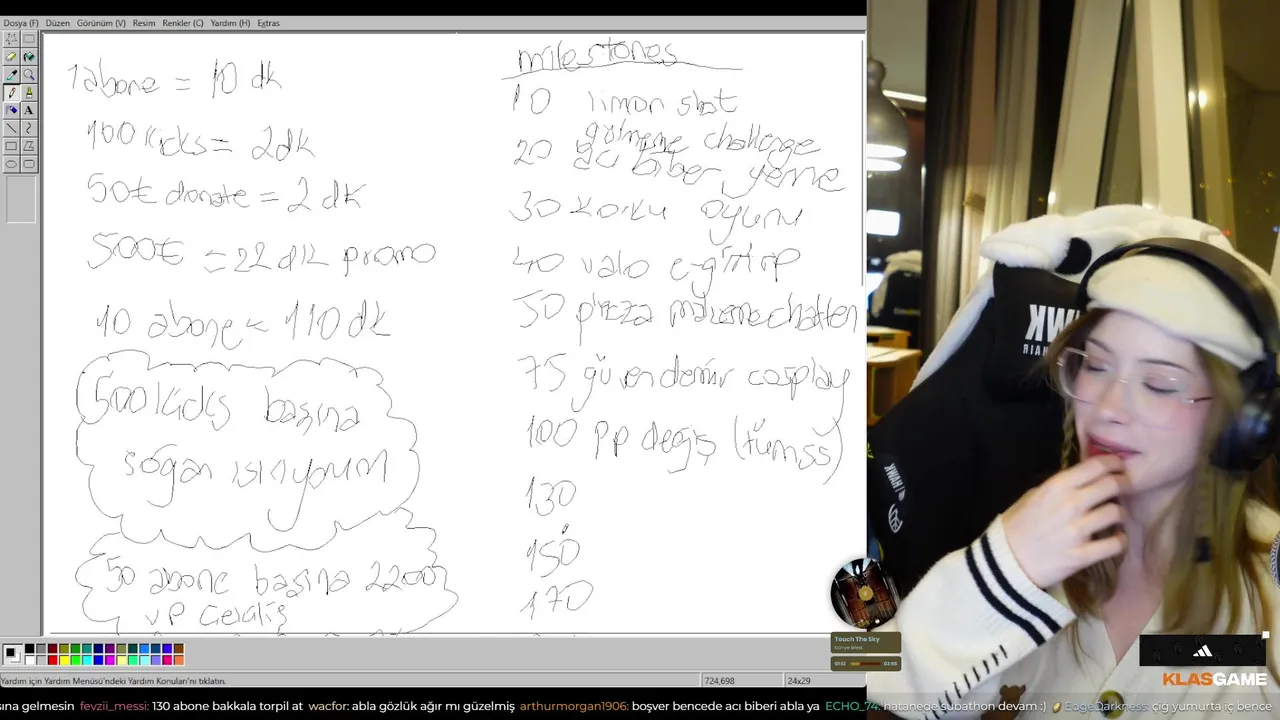 Dosya (F) Düzen Görünüm (V) Resim Renkler (C) Yardım (H) Ekstras
1 abone = 10 dk
100 Kicks = 2 dk
50₺ donate = 2 dk
500₺ = 22 dk promo
10 abone = 110 dk
500 Kicks başına
soğan ısırıyorum
50 abone başına 2200
VP çekiliş
milestones
10 limon shot
20 gülmeme challenge
acı biber yeme
30 korku oyunu
40 valo e-girl rp
50 pizza
75 güven demir cosplay
100 pp değiş (tüm ss)
130
150
170
HAWK
CHAIR
HAWK
Touch The Sky
Kanye West
KLASGAME
Yardım için Yardım Menüsü'ndeki Yardım Konuları'nı tıklatın.
724,698
24x29
sına gelmesin fevzii_messi: 130 abone bakkala torpil at wacfor: abla gözlük ağır mı güzelmiş arthurmorgan1906: boşver bencede acı biberi abla ya ECHO_74: hatanede subathon devam :) EdgeDarkness: çiğ yumurta iç bence